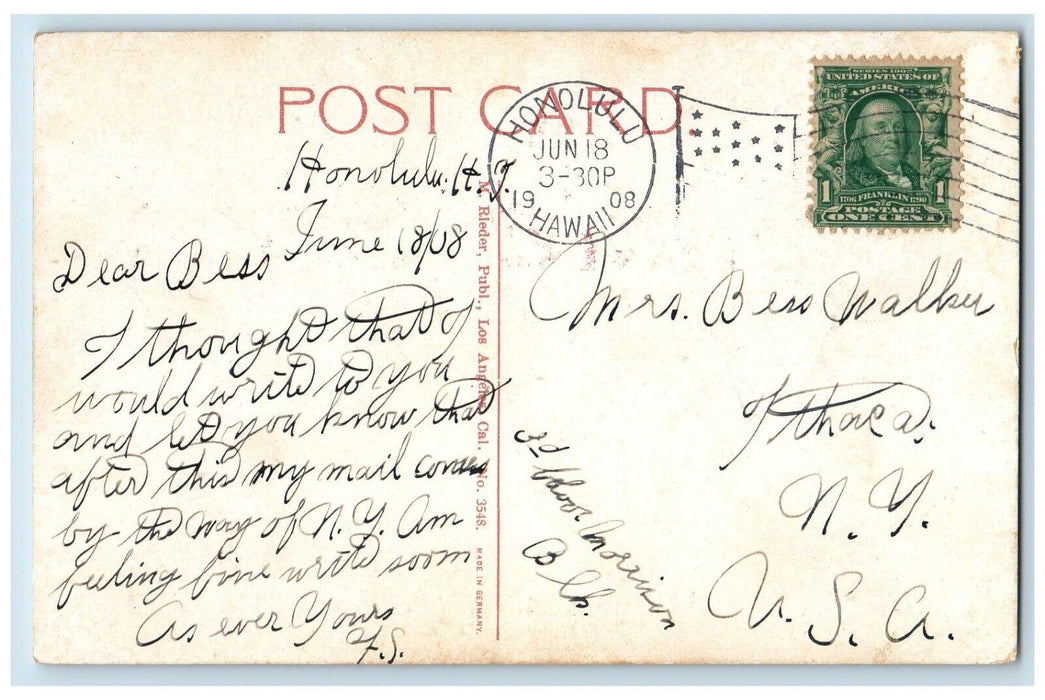 POST CARD
HONOLULU
JUN 18
3-30P
19 08
HAWAII
SERIES 1902
UNITED STATES OF
AMERICA
1 1
1706 FRANKLIN 1790
POSTAGE
ONE CENT
Honolulu. H.T.
June 18/08
Dear Bess
I thought that I
would write to you
and let you know that
after this my mail comes
by the way of N.Y. Am
feeling fine write soon
As ever Yours
F.S.
M. Rieder, Publ., Los Angeles, Cal. No. 3548. MADE IN GERMANY.
Mrs. Bess Walker
Ithaca.
N.Y.
U.S.A.
3d floor Morrison
Blk.